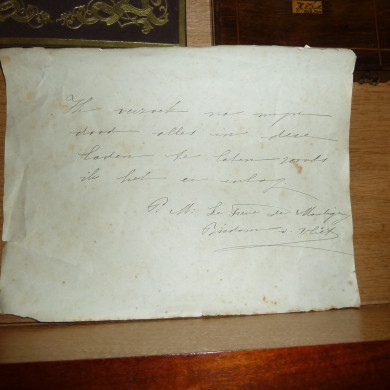 Ik verzoek na mijn
dood alles in deze
laden te laten zooals
ik het er inlag
P. M. Le Fèvre de Montigny
Bisdom v. Vliet